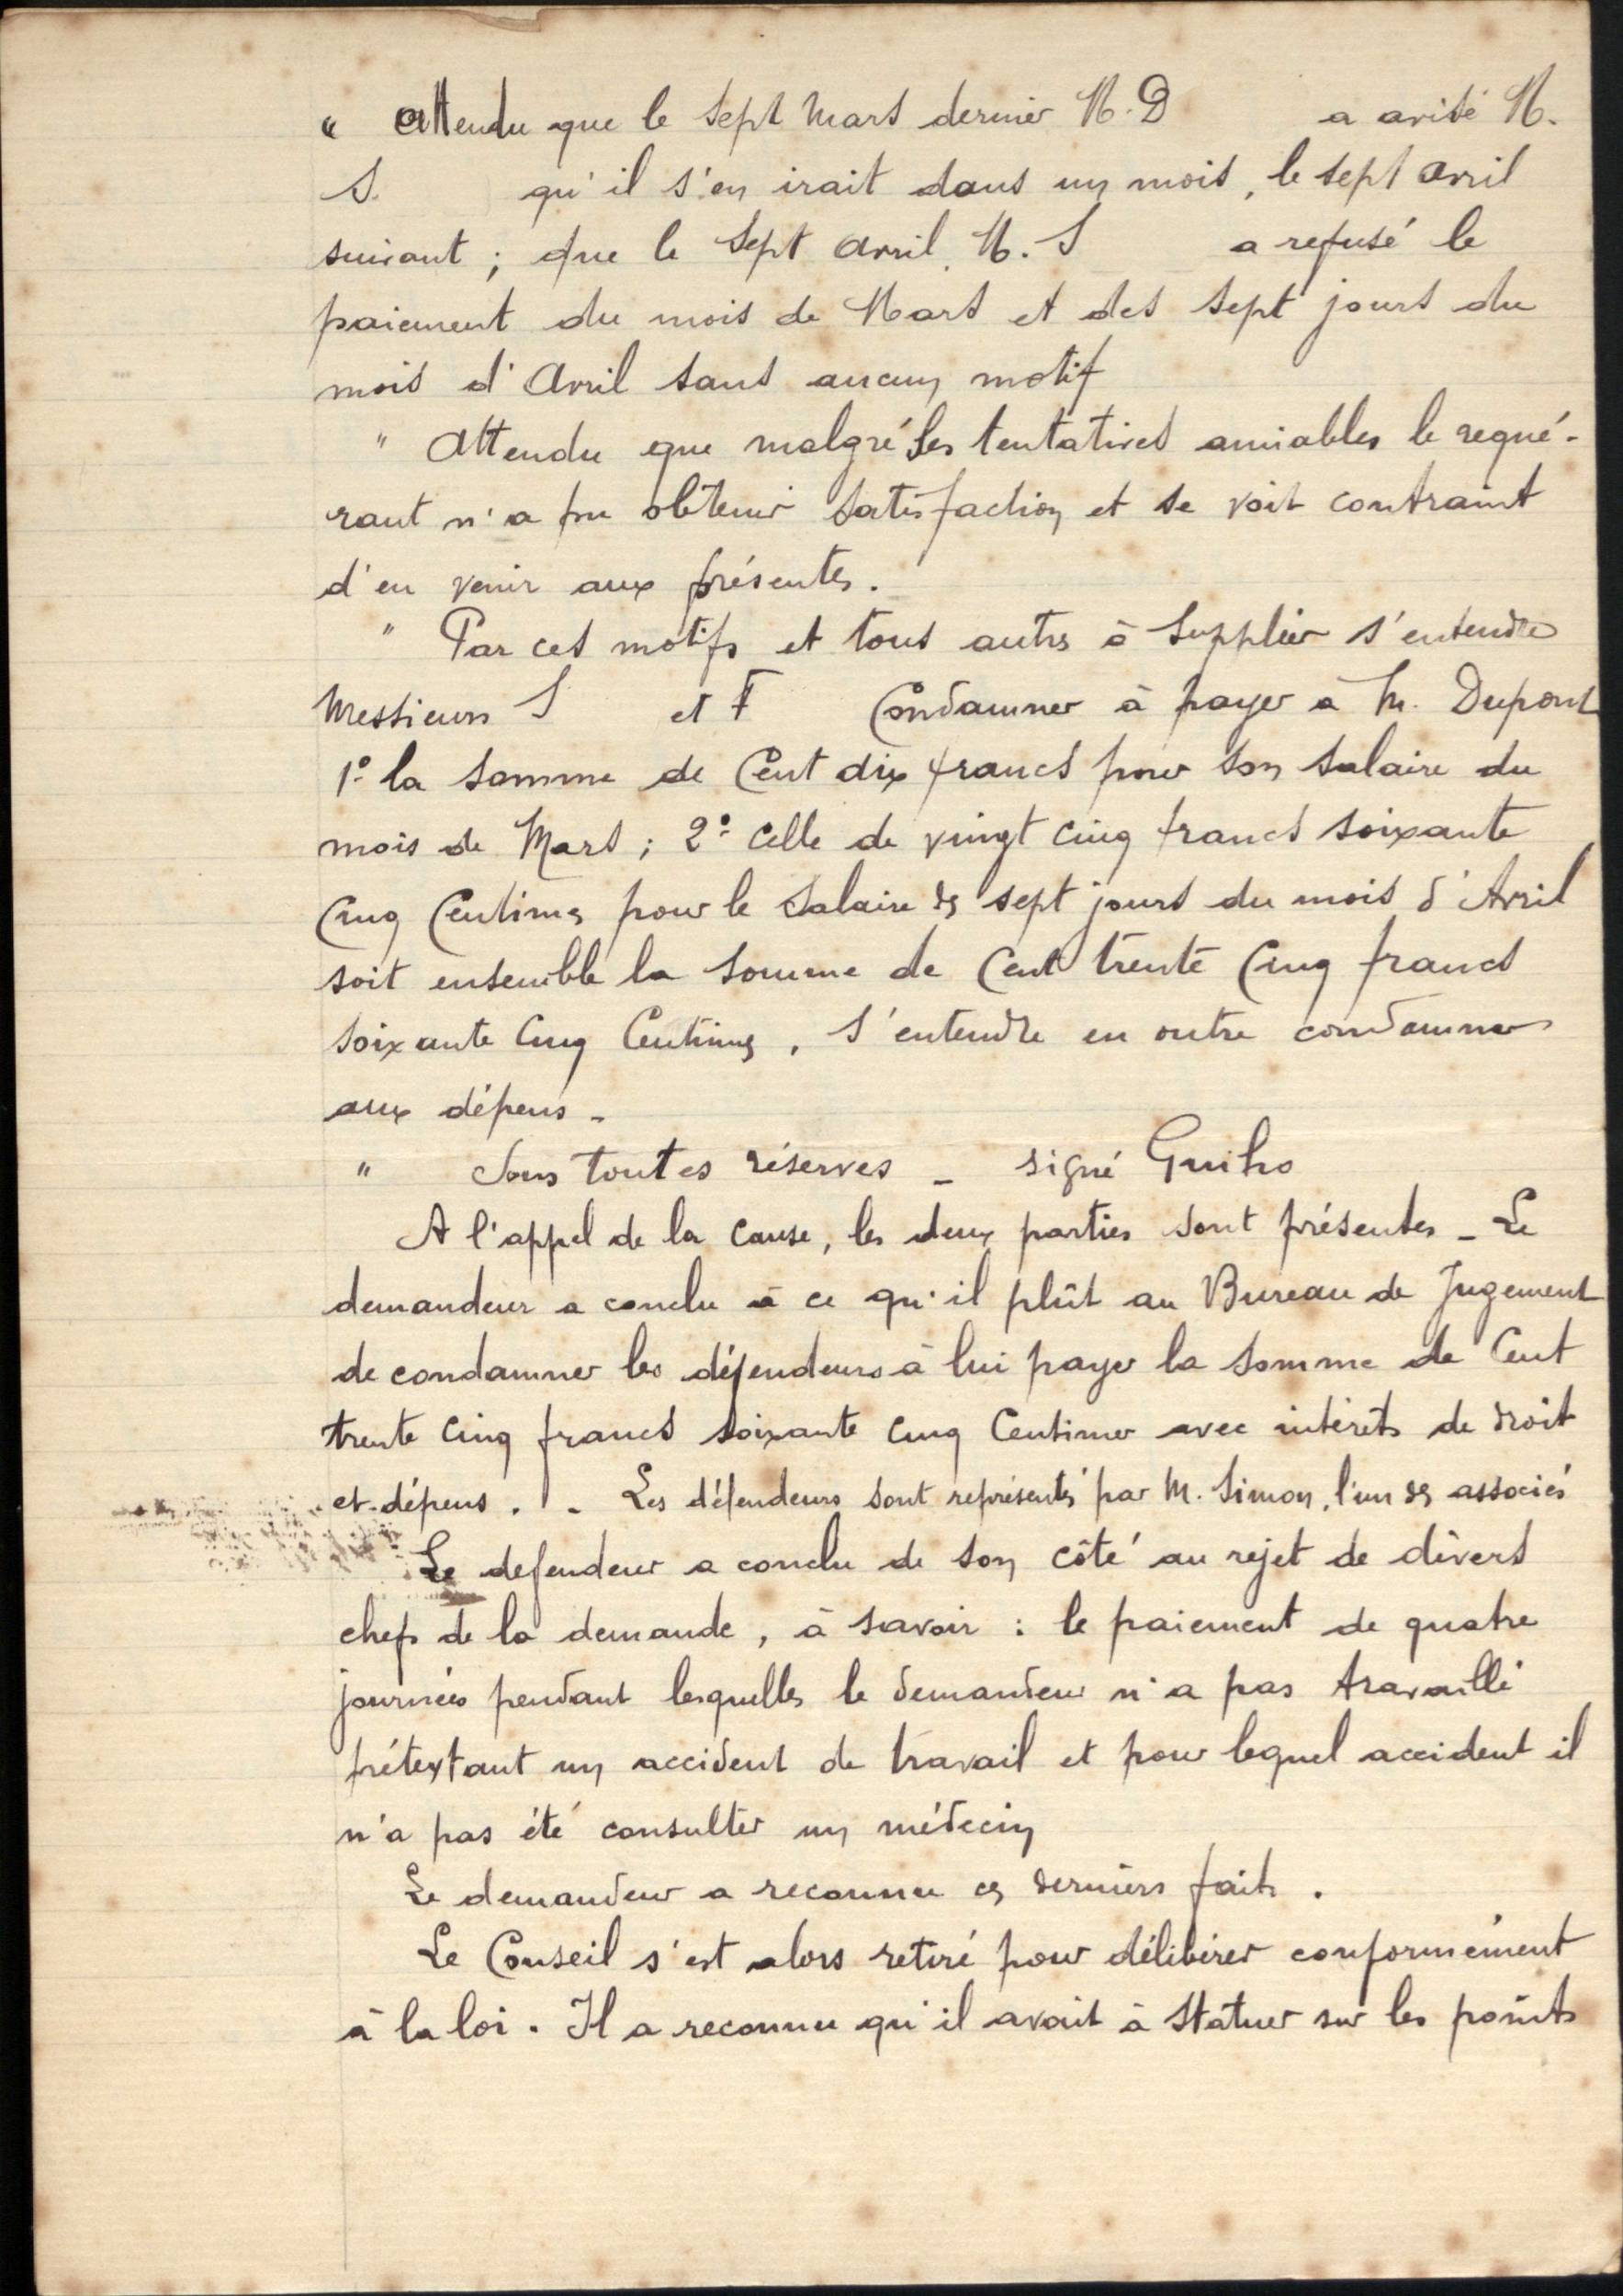 " Attendu que le sept Mars dernier M. D a avisé M.
S. qu'il s'en irait dans un mois, le sept avril
suivant ; que le sept avril, M. S a refusé le
paiement du mois de Mars et des sept jours du
mois d'Avril sans aucun motif
" Attendu que malgré ses tentatives amiables le requé-
rant n'a pu obtenir satisfaction et se voit contraint
d'en venir aux présentes.
" Par ces motifs et tous autres à suppléer s'entendre
Messieurs S et F Condamner à payer à M. Dupont
1° la somme de Cent dix francs pour son salaire du
mois de Mars ; 2° celle de vingt cinq francs soixante
Cinq Centimes pour le salaire des sept jours du mois d'Avril
soit ensemble la somme de Cent trente Cinq francs
soixante Cinq Centimes, s'entendre en outre condamner
aux dépens _
" Sous toutes réserves _ signé Guiho
A l'appel de la cause, les deux parties sont présentes _ Le
demandeur a conclu à ce qu'il plût au Bureau de Jugement
de condamner les défendeurs à lui payer la somme de Cent
trente Cinq francs soixante cinq Centimes avec intérêts de droit
et dépens. _ Les défendeurs sont représentés par M. Simon, l'un des associés
Le defendeur a conclu de son côté au rejet de divers
chefs de la demande, à savoir : le paiement de quatre
journées pendant lesquelles le demandeur n'a pas travaillé
prétextant un accident de travail et pour lequel accident il
n'a pas été consulter un médecin
Le demandeur a reconnu ces derniers faits.
Le Conseil s'est alors retiré pour délibérer conformément
à la loi. Il a reconnu qu'il avait à statuer sur les points